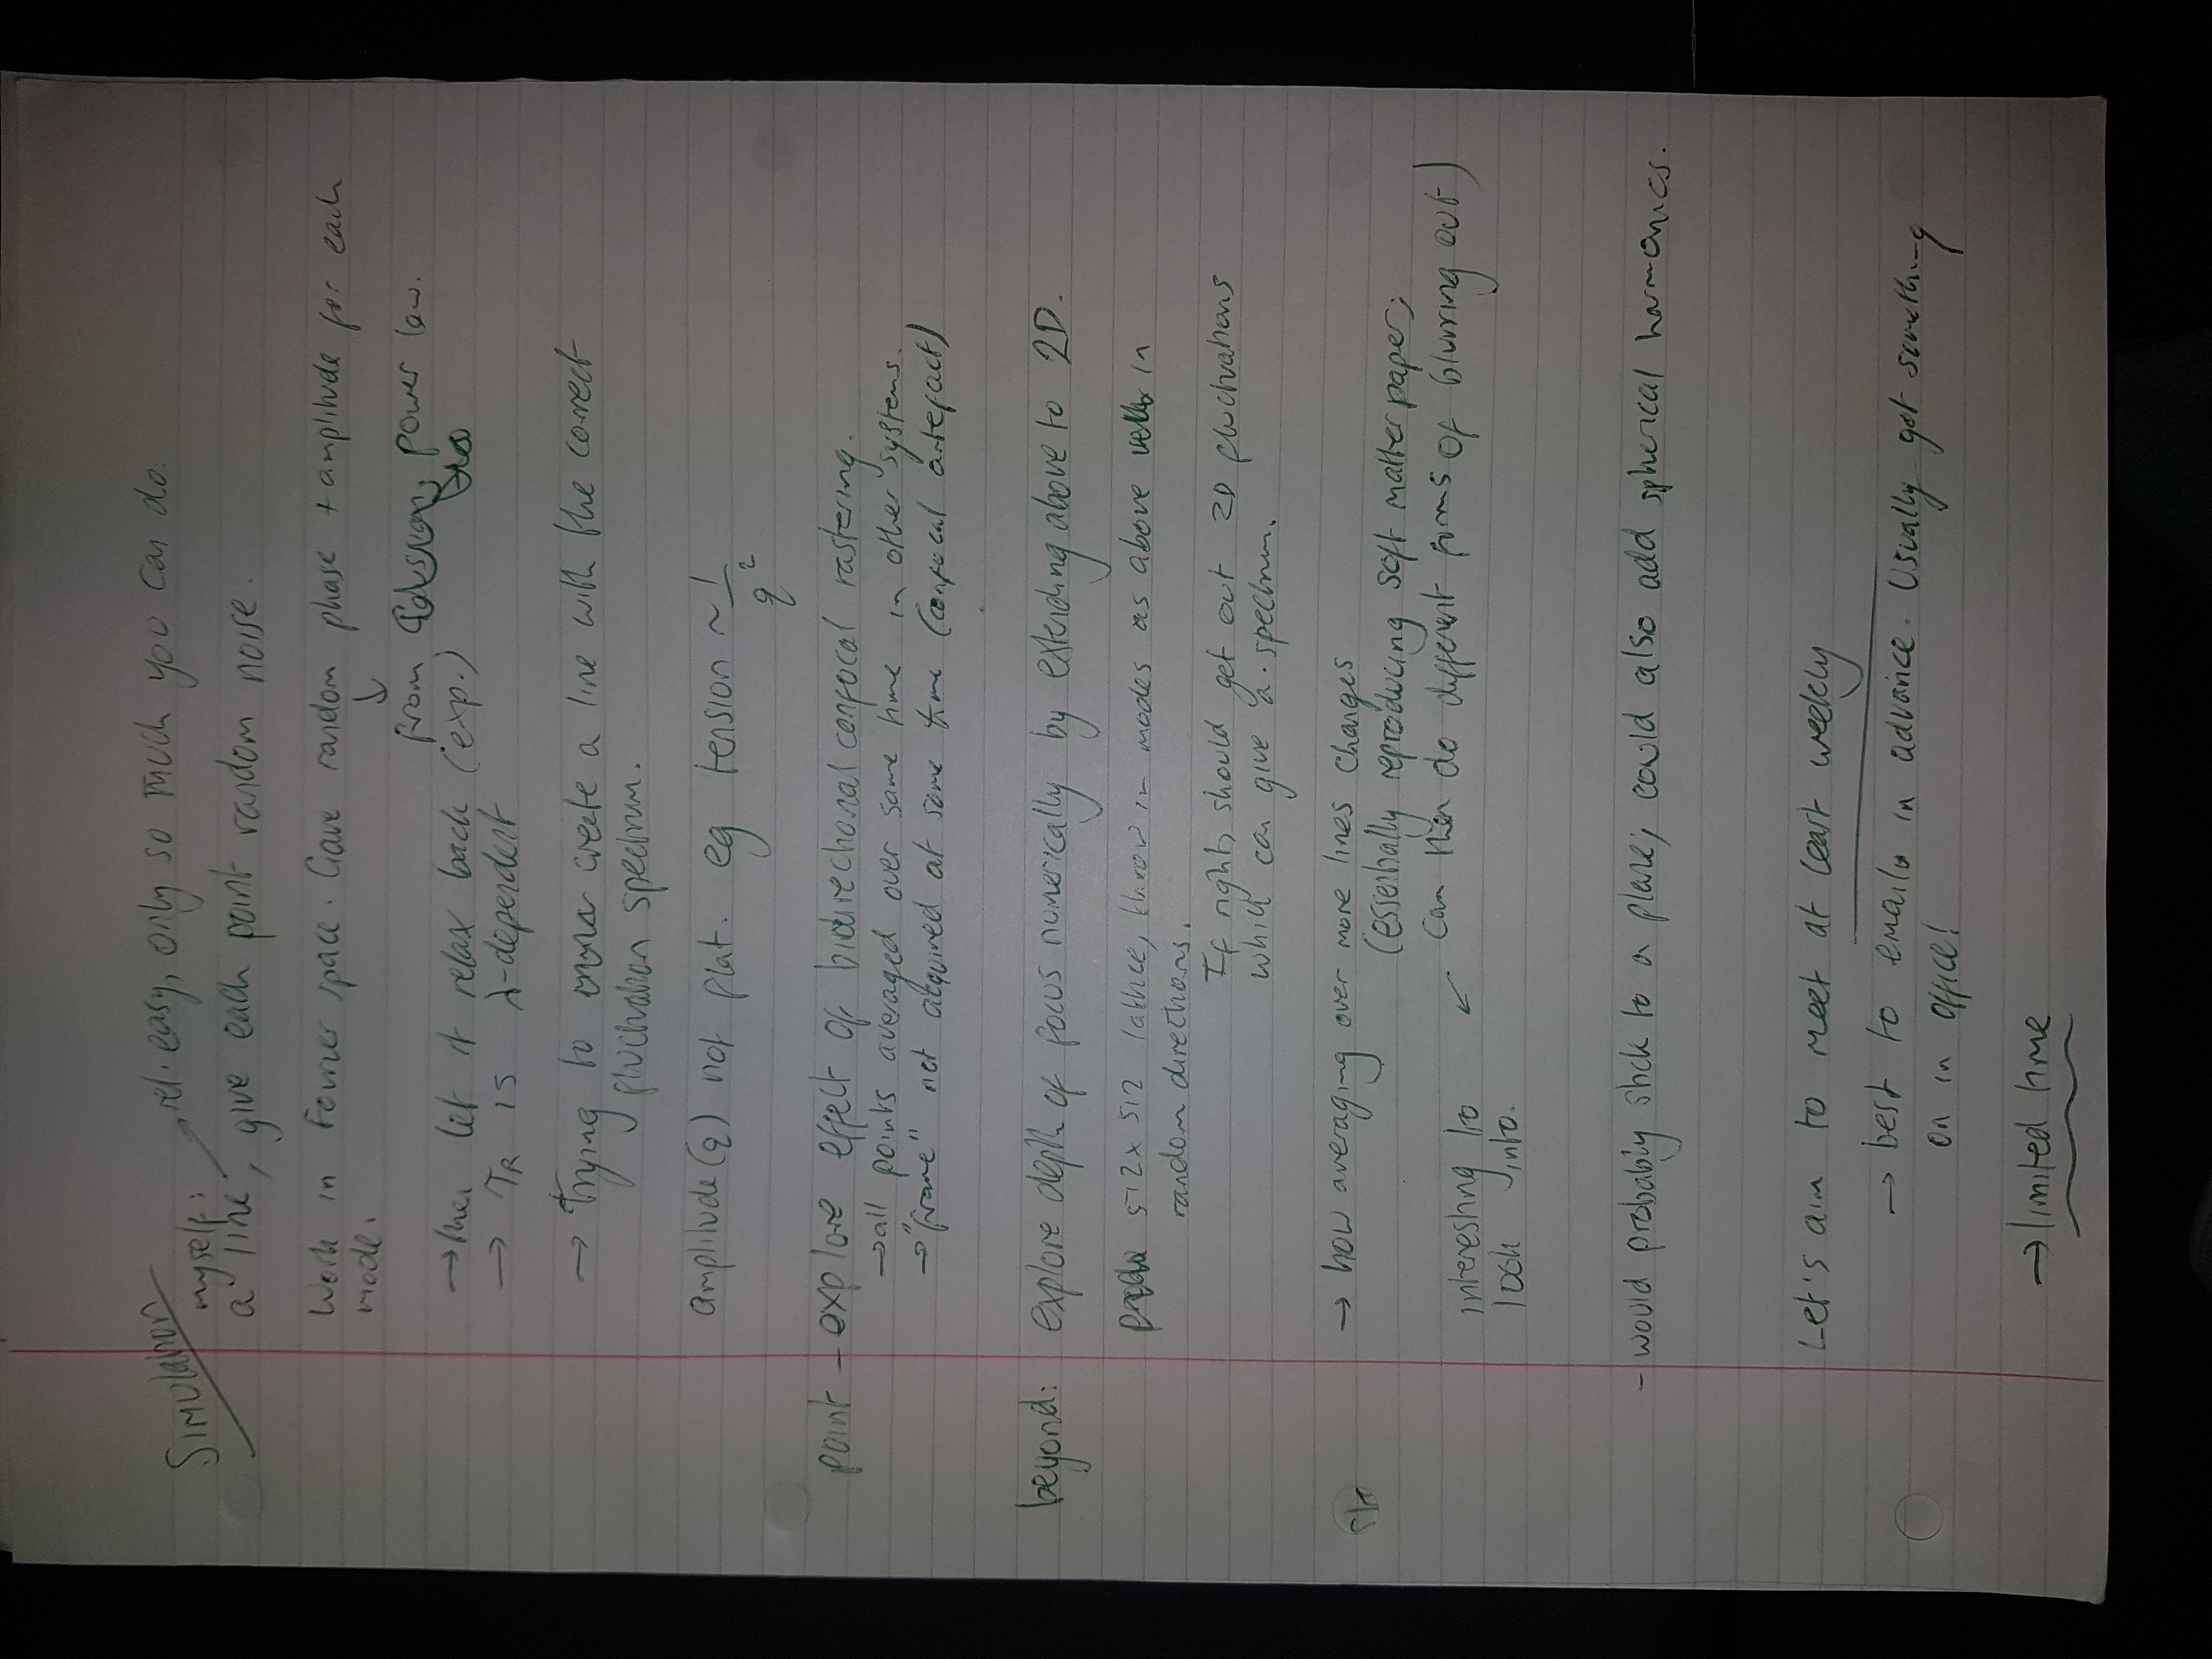 Simulation
rel. easy, only so much you can do.
myself:
a line, give each point random noise.
Work in Fourier space. Gave random phase + amplitude for each
mode.
↓
from Gaussian, power law.
→ then let it relax back (exp.)
→ τR is λ-dependent
→ trying to create a line with the correct
fluctuation spectrum.
amplitude(q) not flat. eg tension ~ 1/q²
point - explore effect of bidirectional confocal rastering.
→ all points averaged over same time in other systems.
→ "frame" not acquired at same time (confocal artefact)
beyond: explore depth of focus numerically by extending above to 2D.
512x512 lattice, throw in modes as above in
random directions.
If right, should get out 2D fluctuations
which can give a spectrum.
→ how averaging over more lines changes
(essentially reproducing soft matter paper;
can then do different forms of blurring out)
interesting to ↙
look into.
- would probably stick to a plane; could also add spherical harmonics.
Let's aim to meet at least weekly
→ best to email in advance. Usually got something
on in office!
→ limited time